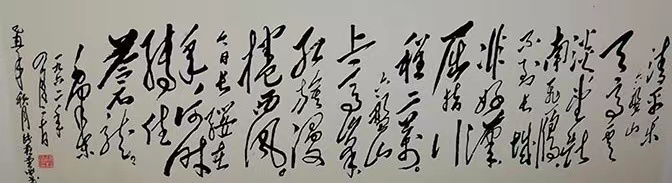 清平乐
六盘山
天高云
淡望断
南飞雁
不到长城
非好漢
屈指行
程二万。
六盘山
上高峯
红旗漫
捲西风。
今日长缨在
手何时
缚住
苍龙
毛泽东
一九六一年